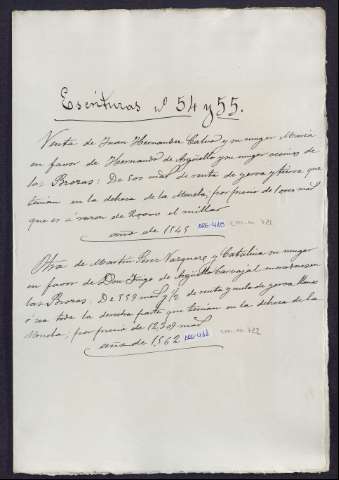 Escrituras nº 54 y 55.
Venta de Juan Hernandez Calvo y su muger María
en favor de Hernando de Argüello y su muger vecinos de
las Brozas: De 500 mrs de renta de yerva y tierra que
tenian en la dehesa de la Muela; por precio de 1 mrs
que es á razon de 20000 el millar
año de 1545
Otra de Martin Perez Vazquez y Catalina su muger
en favor de Don Diego de Argüello Carvajal
las Brozas; De 559 mrs y ½ de renta y de yerva
ó sea toda la parte que tenian en la dehesa de la
Muela; por precio de mrs
año de 1562